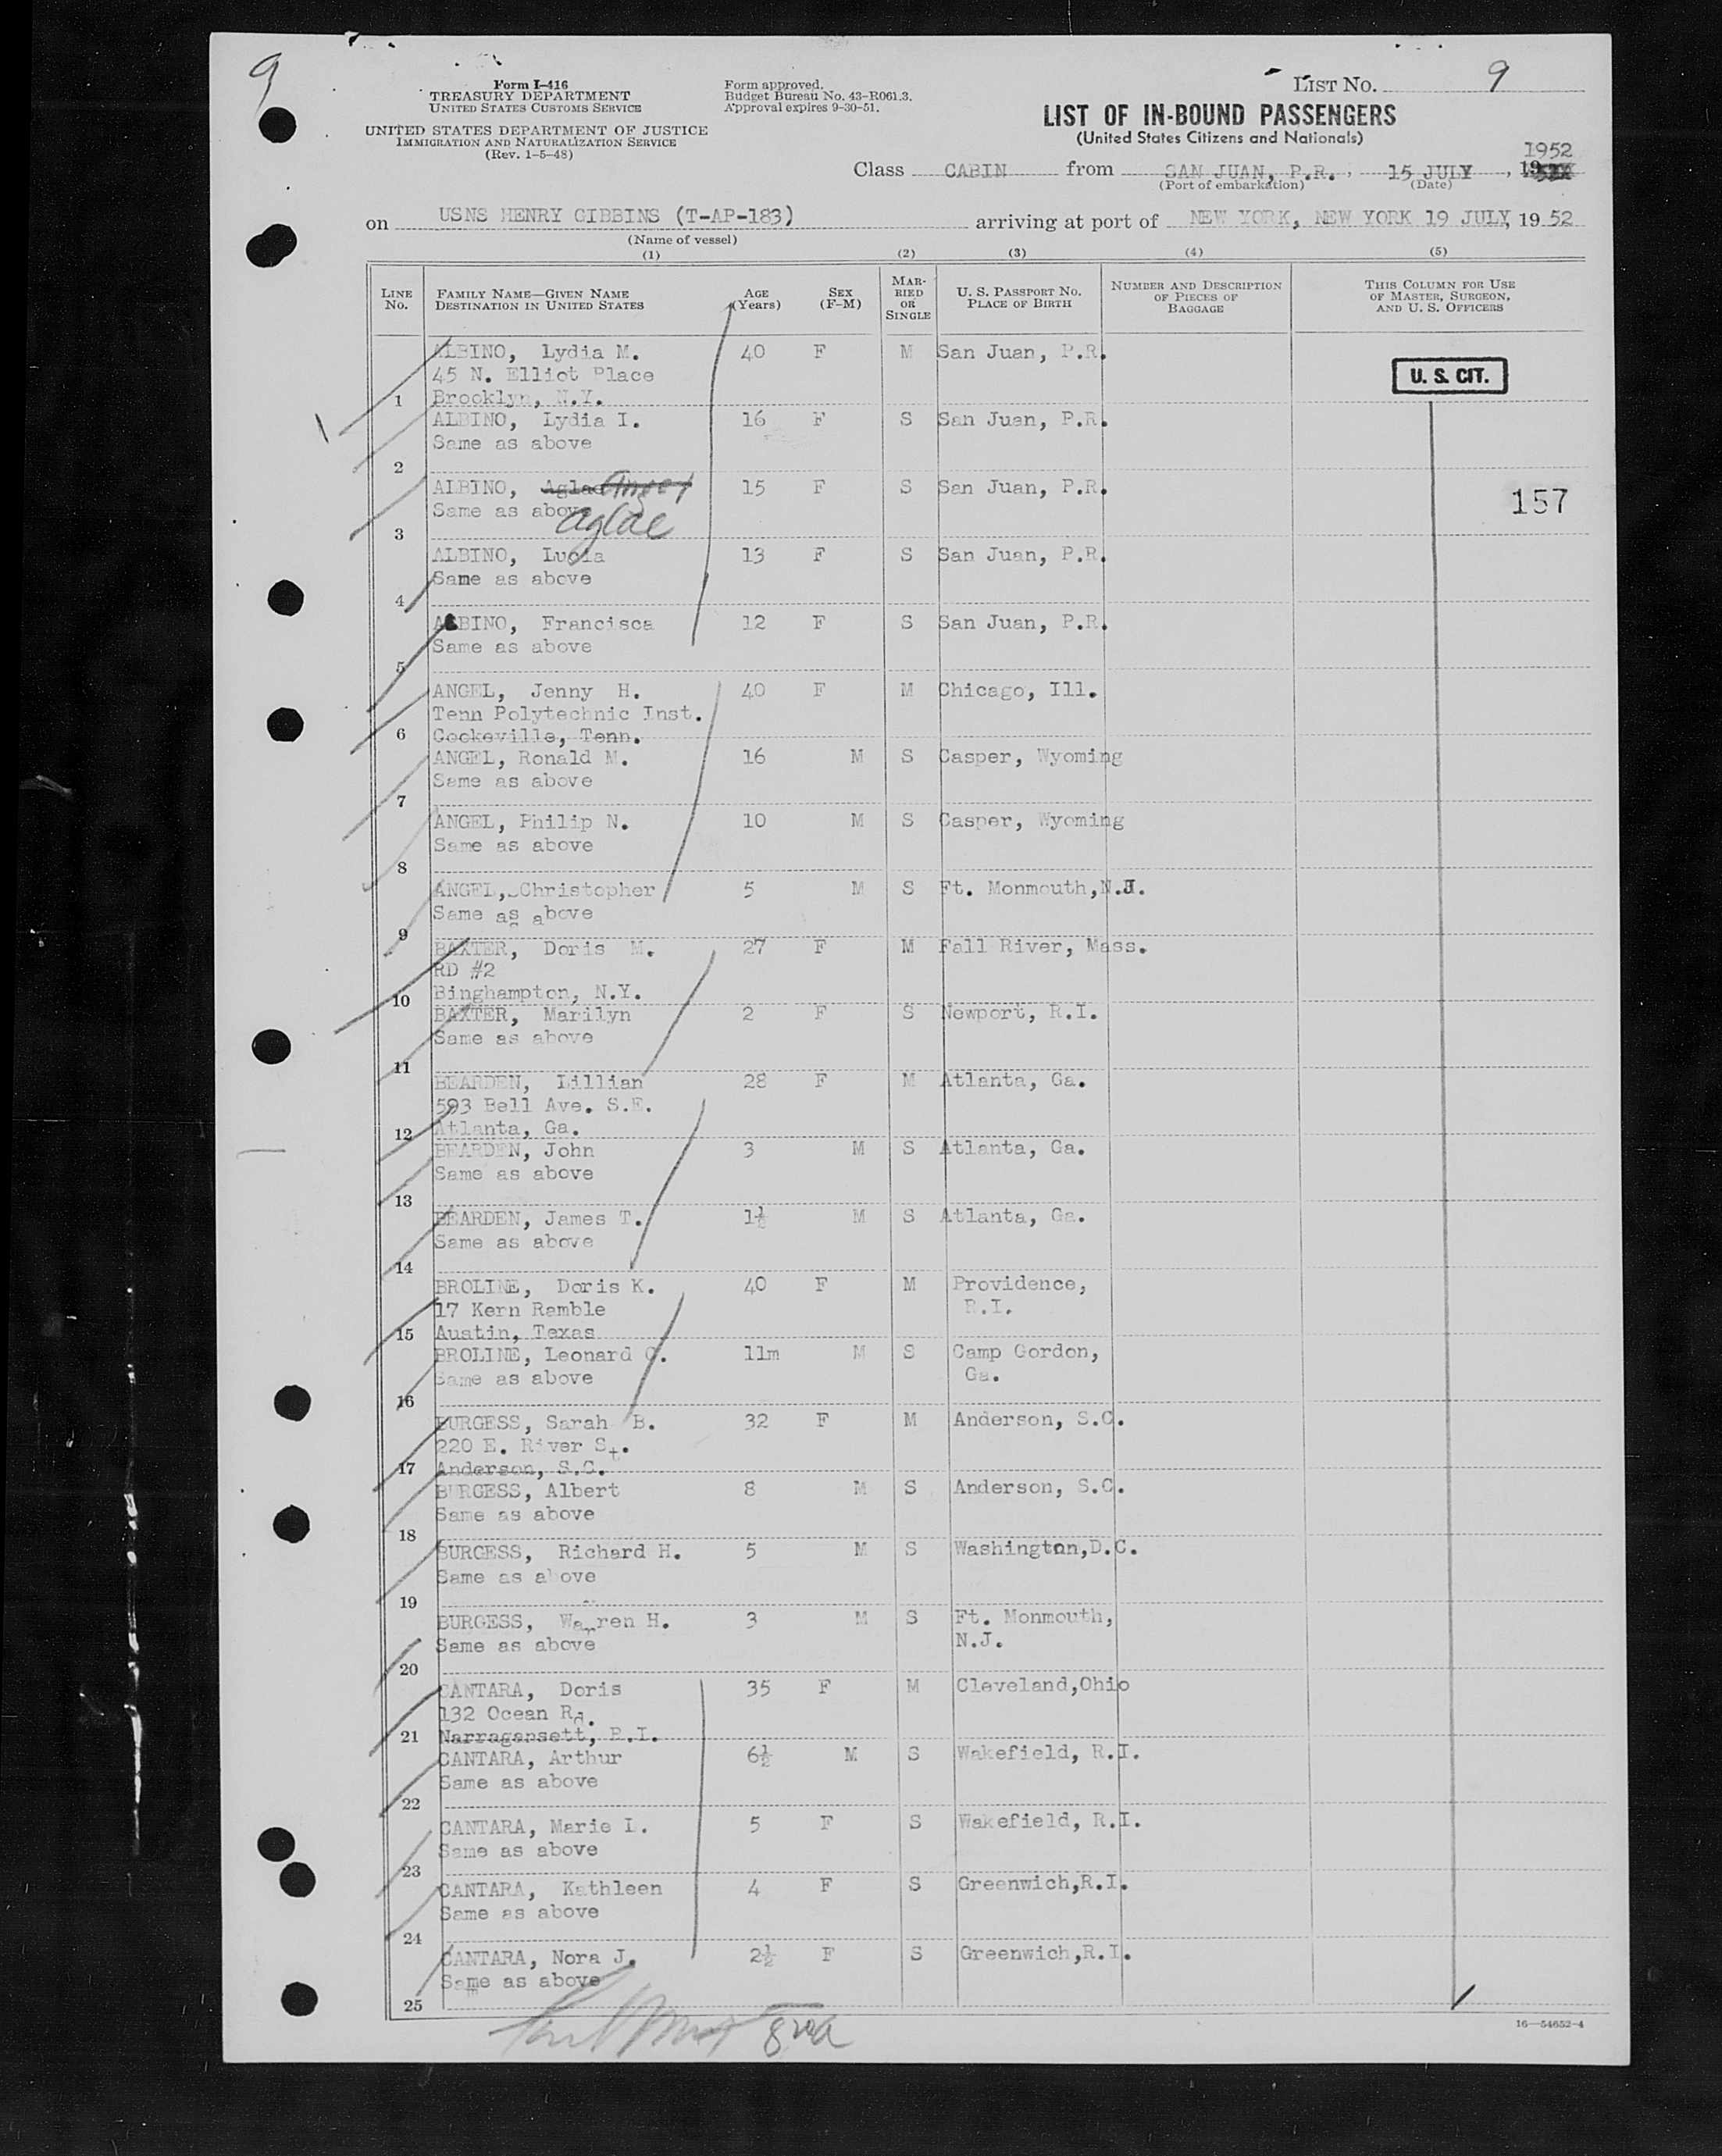 9
Form I-416
TREASURY DEPARTMENT
UNITED STATES CUSTOMS SERVICE
UNITED STATES DEPARTMENT OF JUSTICE
IMMIGRATION AND NATURALIZATION SERVICE
(Rev. 1-5-48)
Form approved.
Budget Bureau No. 43-R061.3.
Approval expires 9-30-51.
LIST NO. 9
LIST OF IN-BOUND PASSENGERS
(United States Citizens and Nationals)
1952
Class CABIN from SAN JUAN, P.R., 15 JULY, 19
(Port of embarkation) (Date)
on USNS HENRY GIBBINS (T-AP-183) arriving at port of NEW YORK, NEW YORK 19 JULY, 1952
(Name of vessel)
(1) (2) (3) (4) (5)
LINE NO. FAMILY NAME—GIVEN NAME DESTINATION IN UNITED STATES AGE (Years) SEX (F-M) MARRIED OR SINGLE U. S. PASSPORT NO. PLACE OF BIRTH NUMBER AND DESCRIPTION OF PIECES OF BAGGAGE THIS COLUMN FOR USE OF MASTER, SURGEON, AND U. S. OFFICERS
ALBINO, Lydia M. 40 F M San Juan, P.R.
45 N. Elliot Place
U. S. CIT.
1 Brooklyn, N.Y.
ALBINO, Lydia I. 16 F S San Juan, P.R.
Same as above
2
ALBINO, Aglae Angel 15 F S San Juan, P.R.
Same as above Aglae
157
3
ALBINO, Lucia 13 F S San Juan, P.R.
Same as above
4
ALBINO, Francisca 12 F S San Juan, P.R.
Same as above
5
ANGEL, Jenny H. 40 F M Chicago, Ill.
Tenn Polytechnic Inst.
6 Cookeville, Tenn.
ANGEL, Ronald M. 16 M S Casper, Wyoming
Same as above
7
ANGEL, Philip N. 10 M S Casper, Wyoming
Same as above
8
ANGEL, Christopher 5 M S Ft. Monmouth,N.J.
Same as above
9
BAXTER, Doris M. 27 F M Fall River, Mass.
RD #2
10 Binghampton, N.Y.
BAXTER, Marilyn 2 F S Newport, R.I.
Same as above
11
BEARDEN, Lillian 28 F M Atlanta, Ga.
593 Bell Ave. S.E.
12 Atlanta, Ga.
BEARDEN, John 3 M S Atlanta, Ga.
Same as above
13
BEARDEN, James T. 1½ M S Atlanta, Ga.
Same as above
14
BROLINE, Doris K. 40 F M Providence,
17 Kern Ramble R.I.
15 Austin, Texas
BROLINE, Leonard C. 11m M S Camp Gordon,
Same as above Ga.
16
BURGESS, Sarah B. 32 F M Anderson, S.C.
220 E. River St.
17 Anderson, S.C.
BURGESS, Albert 8 M S Anderson, S.C.
Same as above
18
BURGESS, Richard H. 5 M S Washington,D.C.
Same as above
19
BURGESS, Warren H. 3 M S Ft. Monmouth,
Same as above N.J.
20
CANTARA, Doris 35 F M Cleveland,Ohio
132 Ocean Rd.
21 Narragansett, R.I.
CANTARA, Arthur 6½ M S Wakefield, R.I.
Same as above
22
CANTARA, Marie L. 5 F S Wakefield, R.I.
Same as above
23
CANTARA, Kathleen 4 F S Greenwich,R.I.
Same as above
24
CANTARA, Nora J. 2½ F S Greenwich,R.I.
Same as above
25
16—54652-4